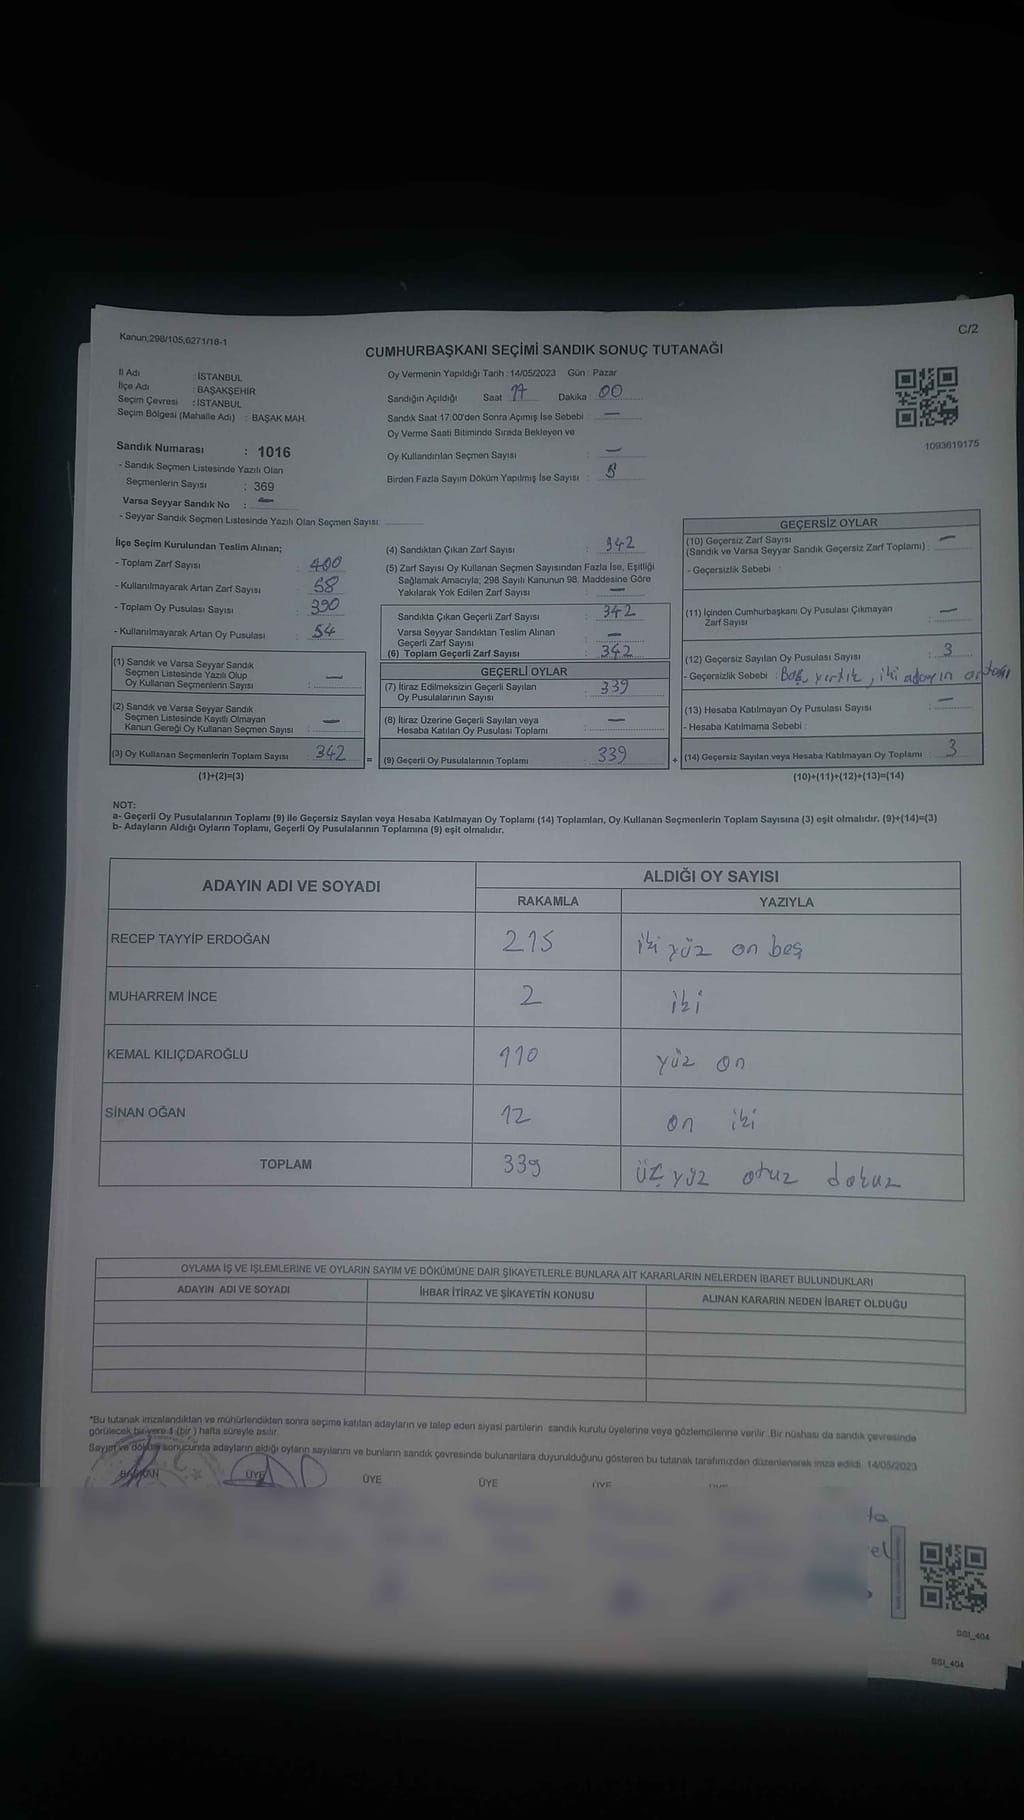 Kanun;298/105,6271/18-1
C/2
CUMHURBAŞKANI SEÇİMİ SANDIK SONUÇ TUTANAĞI
İl Adı : İSTANBUL
İlçe Adı : BAŞAKŞEHİR
Seçim Çevresi : İSTANBUL
Seçim Bölgesi (Mahalle Adı) : BAŞAK MAH.
Sandık Numarası : 1016
- Sandık Seçmen Listesinde Yazılı Olan
Seçmenlerin Sayısı : 369
Varsa Seyyar Sandık No : —
- Seyyar Sandık Seçmen Listesinde Yazılı Olan Seçmen Sayısı
Oy Vermenin Yapıldığı Tarih : 14/05/2023 Gün : Pazar
Sandığın Açıldığı Saat 17 Dakika : 00
Sandık Saat 17:00'den Sonra Açımış İse Sebebi : —
Oy Verme Saati Bitiminde Sırada Bekleyen ve
Oy Kullandırılan Seçmen Sayısı : —
Birden Fazla Sayım Döküm Yapılmış İse Sayısı :
1093619175
İlçe Seçim Kurulundan Teslim Alınan;
- Toplam Zarf Sayısı : 400
- Kullanılmayarak Artan Zarf Sayısı : 58
- Toplam Oy Pusulası Sayısı : 390
- Kullanılmayarak Artan Oy Pusulası : 54
(1) Sandık ve Varsa Seyyar Sandık
Seçmen Listesinde Yazılı Olup
Oy Kullanan Seçmenlerin Sayısı : —
(2) Sandık ve Varsa Seyyar Sandık
Seçmen Listesinde Kayıtlı Olmayan
Kanun Gereği Oy Kullanan Seçmen Sayısı : —
(3) Oy Kullanan Seçmenlerin Toplam Sayısı : 342
(1)+(2)=(3)
(4) Sandıktan Çıkan Zarf Sayısı : 342
(5) Zarf Sayısı Oy Kullanan Seçmen Sayısından Fazla İse, Eşitliği
Sağlamak Amacıyla; 298 Sayılı Kanunun 98. Maddesine Göre
Yakılarak Yok Edilen Zarf Sayısı : —
Sandıkta Çıkan Geçerli Zarf Sayısı : 342
Varsa Seyyar Sandıktan Teslim Alınan
Geçerli Zarf Sayısı : —
(6) Toplam Geçerli Zarf Sayısı : 342
GEÇERLİ OYLAR
(7) İtiraz Edilmeksizin Geçerli Sayılan
Oy Pusulalarının Sayısı : 339
(8) İtiraz Üzerine Geçerli Sayılan veya
Hesaba Katılan Oy Pusulası Toplamı : —
= (9) Geçerli Oy Pusulalarının Toplamı : 339
GEÇERSİZ OYLAR
(10) Geçersiz Zarf Sayısı
(Sandık ve Varsa Seyyar Sandık Geçersiz Zarf Toplamı) : —
- Geçersizlik Sebebi :
(11) İçinden Cumhurbaşkanı Oy Pusulası Çıkmayan
Zarf Sayısı : —
(12) Geçersiz Sayılan Oy Pusulası Sayısı : 3
- Geçersizlik Sebebi : Boş, yırtık, iki adayın ortası
(13) Hesaba Katılmayan Oy Pusulası Sayısı : —
- Hesaba Katılmama Sebebi :
+ (14) Geçersiz Sayılan veya Hesaba Katılmayan Oy Toplamı : 3
(10)+(11)+(12)+(13)=(14)
NOT:
a- Geçerli Oy Pusulalarının Toplamı (9) ile Geçersiz Sayılan veya Hesaba Katılmayan Oy Toplamı (14) Toplamları, Oy Kullanan Seçmenlerin Toplam Sayısına (3) eşit olmalıdır. (9)+(14)=(3)
b- Adayların Aldığı Oyların Toplamı, Geçerli Oy Pusulalarının Toplamına (9) eşit olmalıdır.
ADAYIN ADI VE SOYADI ALDIĞI OY SAYISI
RAKAMLA YAZIYLA
RECEP TAYYİP ERDOĞAN 215 iki yüz on beş
MUHARREM İNCE 2 iki
KEMAL KILIÇDAROĞLU 110 yüz on
SİNAN OĞAN 12 on iki
TOPLAM 339 üç yüz otuz dokuz
OYLAMA İŞ VE İŞLEMLERİNE VE OYLARIN SAYIM VE DÖKÜMÜNE DAİR ŞİKAYETLERLE BUNLARA AİT KARARLARIN NELERDEN İBARET BULUNDUKLARI
ADAYIN ADI VE SOYADI İHBAR İTİRAZ VE ŞİKAYETİN KONUSU ALINAN KARARIN NEDEN İBARET OLDUĞU
*Bu tutanak imzalandıktan ve mühürlendikten sonra seçime katılan adayların ve talep eden siyasi partilerin sandık kurulu üyelerine veya gözlemcilerine verilir. Bir nüshası da sandık çevresinde
görülecek bir yere 1 (bir) hafta süreyle asılır.
Sayım ve döküm sonucunda adayların aldığı oyların sayılarını ve bunların sandık çevresinde bulunanlara duyurulduğunu gösteren bu tutanak tarafımızdan düzenlenerek imza edildi. 14/05/2023
BAŞKAN ÜYE ÜYE ÜYE ÜYE
SSI_404
SSI_404